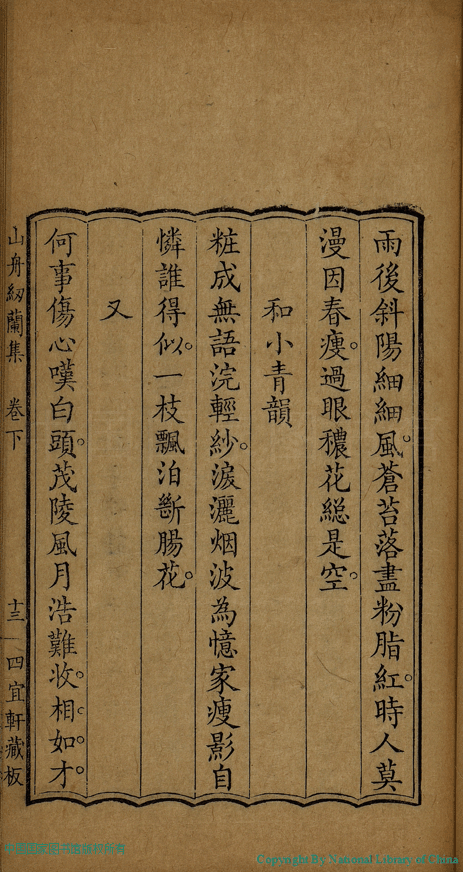 雨後斜陽細細風蒼苔落盡粉脂紅時人莫
漫因春瘦過眼穠花総是空
和小青韻
粧成無語浣輕紗淚灑烟波為憶家瘦影自
憐誰得似一枝飄泊斷腸花
又
何事傷心嘆白頭茂陵風月浩難收相如才
山舟紉蘭集 卷下 十三 四宜軒藏板
Copyright By National Library of China